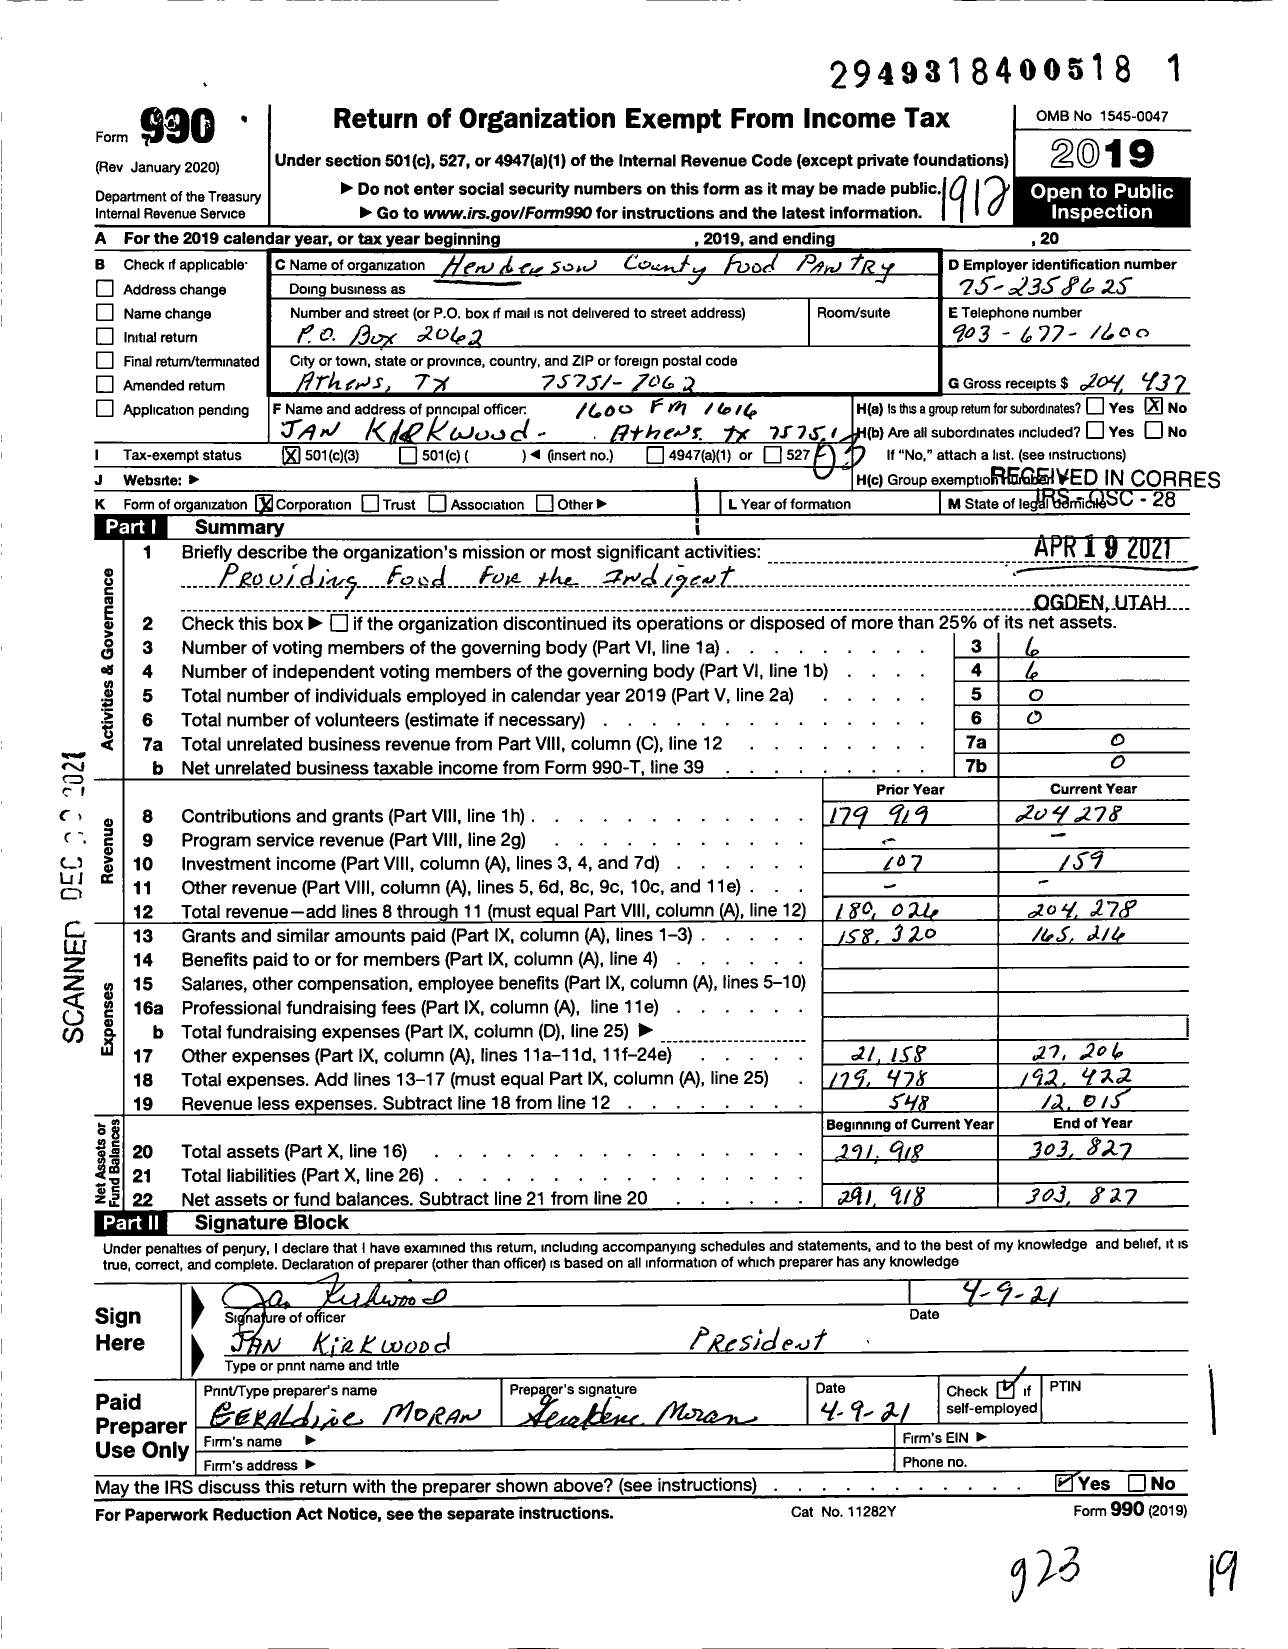 29493184005181
Form 990
(Rev January 2020)
Department of the Treasury
Internal Revenue Service
Return of Organization Exempt From Income Tax
Under section 501(c), 527, or 4947(a)(1) of the Internal Revenue Code (except private foundations)
▶ Do not enter social security numbers on this form as it may be made public.
▶ Go to www.irs.gov/Form990 for instructions and the latest information.
1912
OMB No 1545-0047
2019
Open to Public
Inspection
A For the 2019 calendar year, or tax year beginning , 2019, and ending , 20
B Check if applicable
Address change
Name change
Initial return
Final return/terminated
Amended return
Application pending
C Name of organization Henderson County Food Pantry
Doing business as
Number and street (or P.O. box if mail is not delivered to street address) Room/suite
P.O. Box 2062
City or town, state or province, country, and ZIP or foreign postal code
Athens, TX 75751-7062
D Employer identification number
75-2358625
E Telephone number
903-677-1600
G Gross receipts $ 204,437
F Name and address of principal officer: 1600 FM 1616
JAN KIRKWOOD - Athens TX 75751
H(a) Is this a group return for subordinates? Yes X No
H(b) Are all subordinates included? Yes No
If "No," attach a list. (see instructions)
I Tax-exempt status X 501(c)(3) 501(c) ( ) ◀ (insert no.) 4947(a)(1) or 527 03
J Website: ▶
H(c) Group exemption
RECEIVED IN CORRES
IRS - OSC - 28
K Form of organization X Corporation Trust Association Other ▶
L Year of formation
M State of legal domicile
APR 19 2021
OGDEN, UTAH
Part I Summary
Activities & Governance
1 Briefly describe the organization's mission or most significant activities:
Providing Food For the Indigent
2 Check this box ▶ if the organization discontinued its operations or disposed of more than 25% of its net assets.
3 Number of voting members of the governing body (Part VI, line 1a) 3 6
4 Number of independent voting members of the governing body (Part VI, line 1b) 4 6
5 Total number of individuals employed in calendar year 2019 (Part V, line 2a) 5 0
6 Total number of volunteers (estimate if necessary) 6 0
7a Total unrelated business revenue from Part VIII, column (C), line 12 7a 0
b Net unrelated business taxable income from Form 990-T, line 39 7b 0
Prior Year Current Year
Revenue
8 Contributions and grants (Part VIII, line 1h) 179 919 204 278
9 Program service revenue (Part VIII, line 2g) - -
10 Investment income (Part VIII, column (A), lines 3, 4, and 7d) 107 159
11 Other revenue (Part VIII, column (A), lines 5, 6d, 8c, 9c, 10c, and 11e) - -
12 Total revenue—add lines 8 through 11 (must equal Part VIII, column (A), line 12) 180,026 204,278
Expenses
13 Grants and similar amounts paid (Part IX, column (A), lines 1–3) 158,320 165,216
14 Benefits paid to or for members (Part IX, column (A), line 4)
15 Salaries, other compensation, employee benefits (Part IX, column (A), lines 5–10)
16a Professional fundraising fees (Part IX, column (A), line 11e)
b Total fundraising expenses (Part IX, column (D), line 25) ▶
17 Other expenses (Part IX, column (A), lines 11a–11d, 11f–24e) 21,158 27,206
18 Total expenses. Add lines 13–17 (must equal Part IX, column (A), line 25) 179,478 192,422
19 Revenue less expenses. Subtract line 18 from line 12 548 12,015
Net Assets or
Fund Balances
Beginning of Current Year End of Year
20 Total assets (Part X, line 16) 291,918 303,827
21 Total liabilities (Part X, line 26)
22 Net assets or fund balances. Subtract line 21 from line 20 291,918 303,827
SCANNED DEC 2021
Part II Signature Block
Under penalties of perjury, I declare that I have examined this return, including accompanying schedules and statements, and to the best of my knowledge and belief, it is
true, correct, and complete. Declaration of preparer (other than officer) is based on all information of which preparer has any knowledge
Sign
Here
Jan Kirkwood 4-9-21
Signature of officer Date
JAN KIRKWOOD President
Type or print name and title
Paid
Preparer
Use Only
Print/Type preparer's name Preparer's signature Date Check if PTIN
self-employed
GERALDINE MORAN Geraldine Moran 4-9-21
Firm's name ▶ Firm's EIN ▶
Firm's address ▶ Phone no.
May the IRS discuss this return with the preparer shown above? (see instructions) Yes No
For Paperwork Reduction Act Notice, see the separate instructions. Cat No. 11282Y Form 990 (2019)
923 19